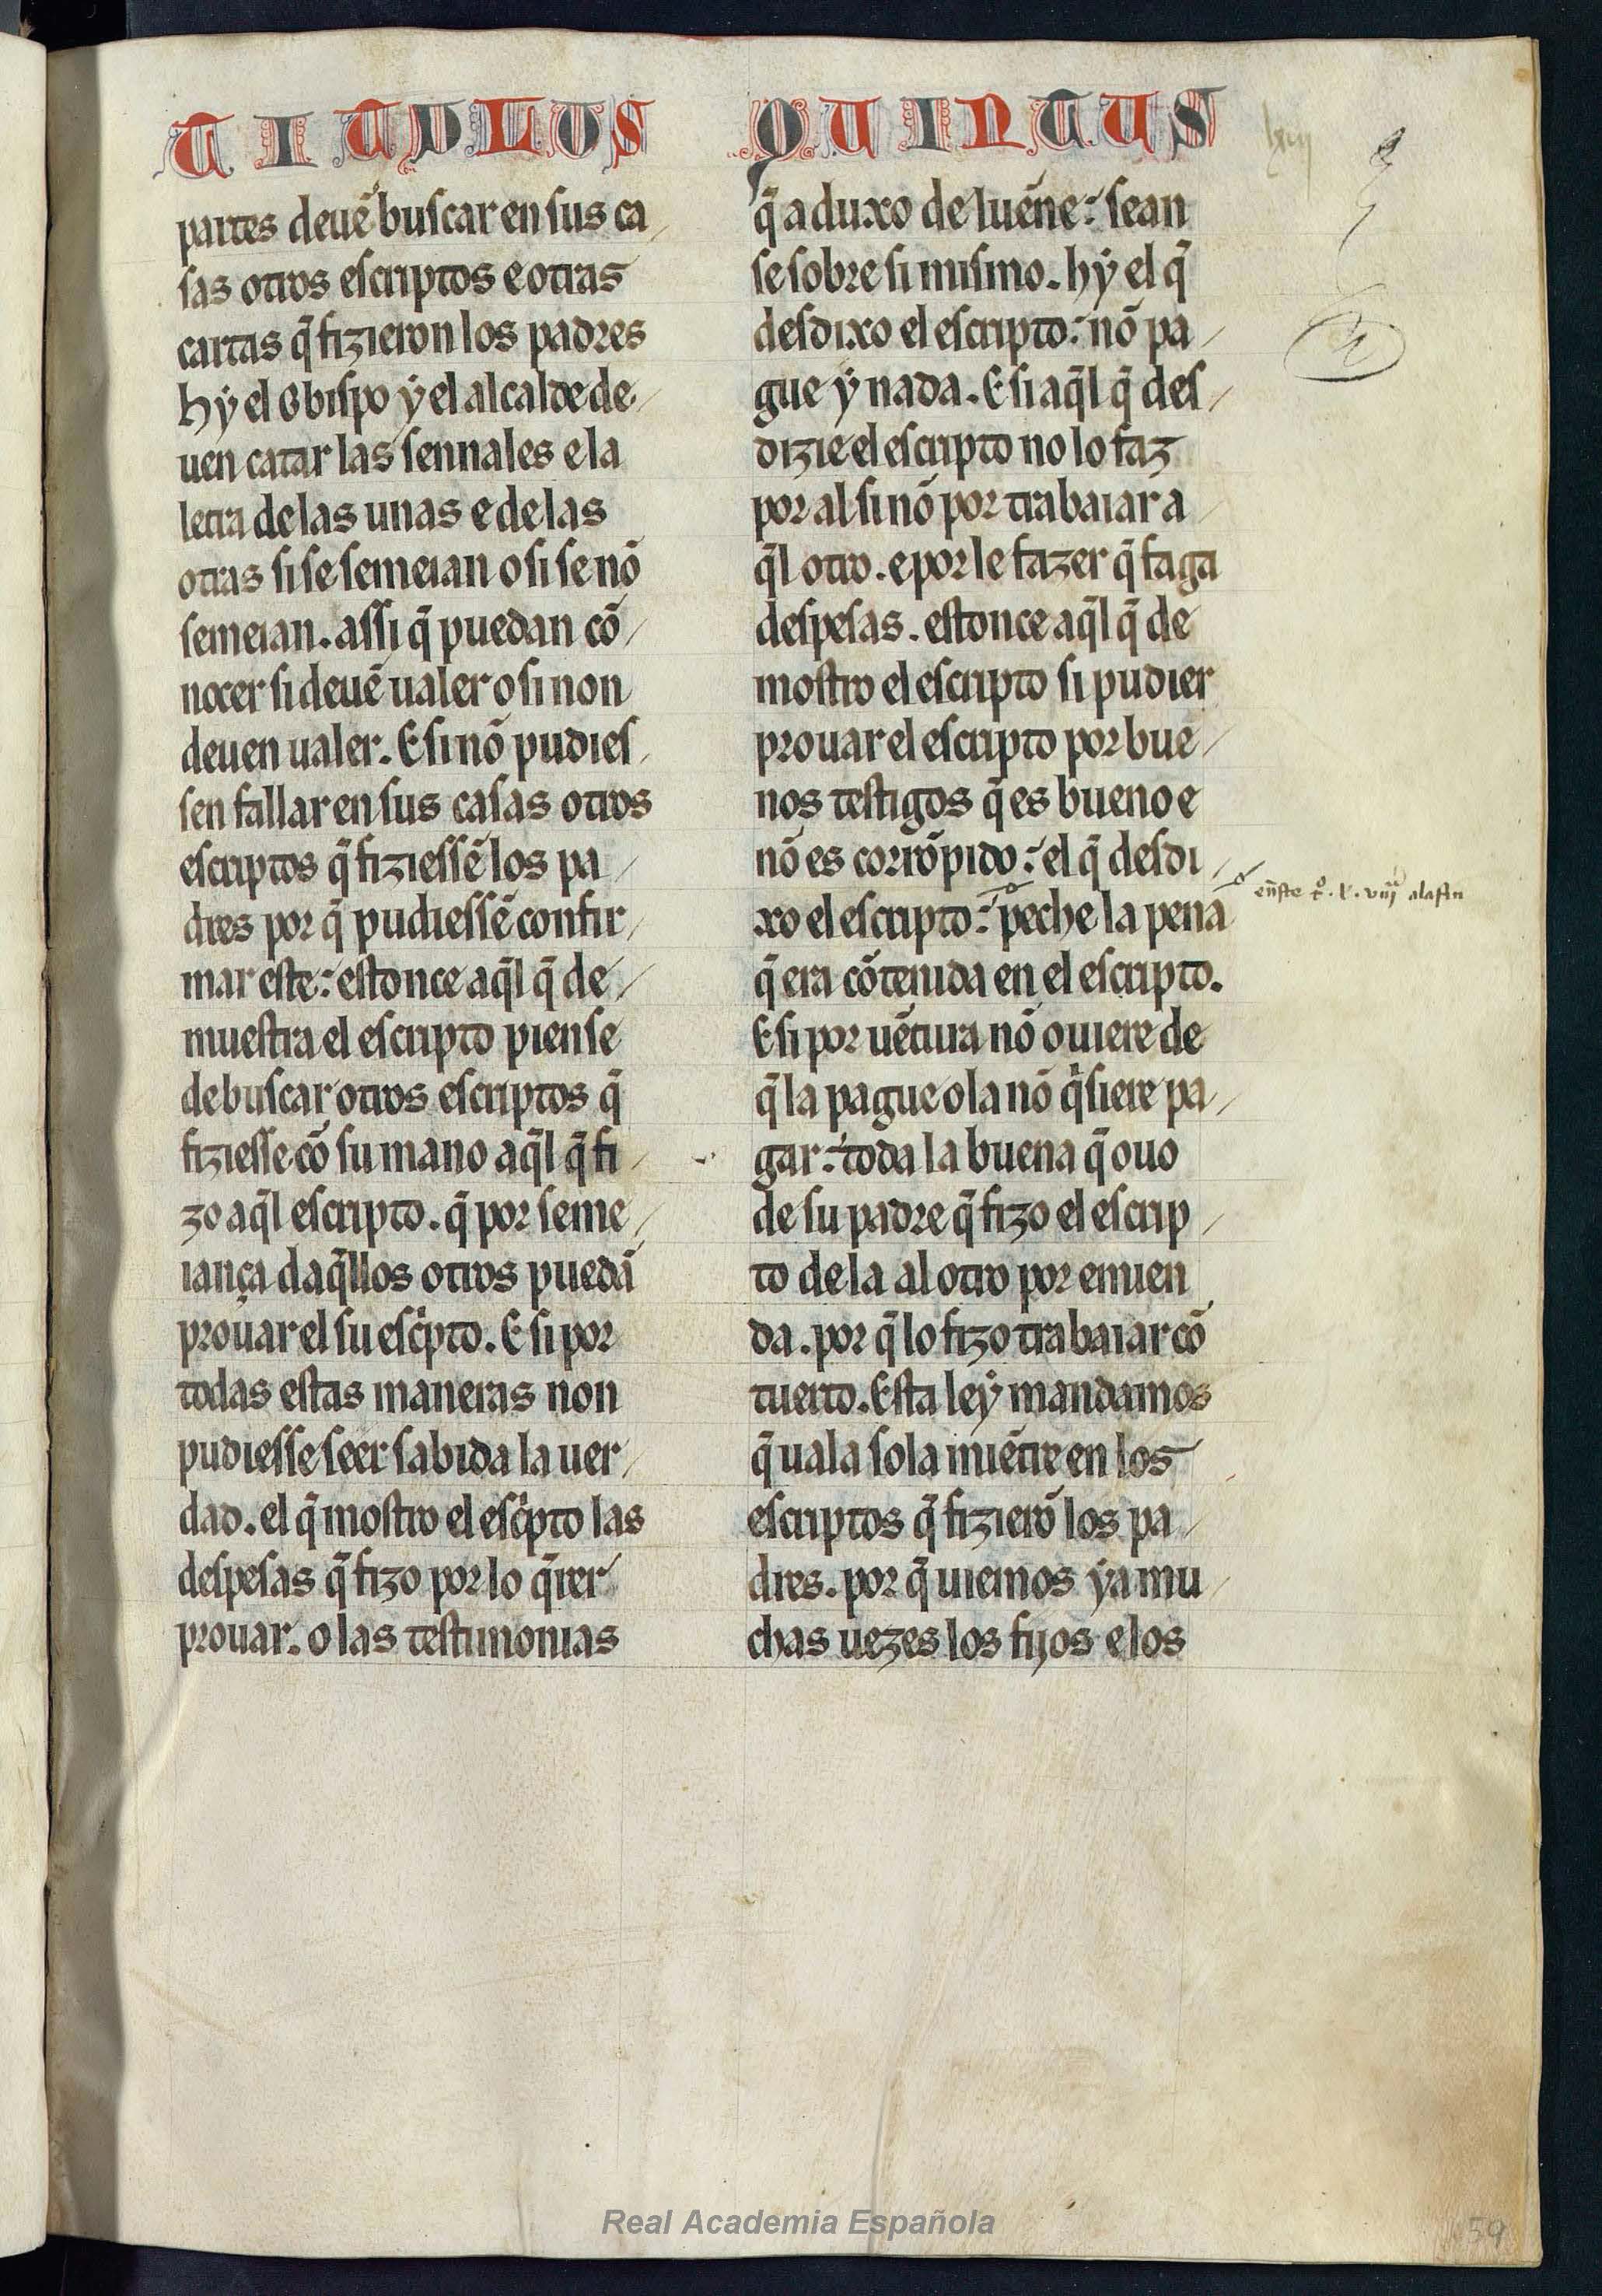 TITULUS QUINTUS
partes deuẽ buscar en sus ca
sas otros escriptos e otras
cartas q̃ fizieron los padres
hẏ el obispo ẏ el alcalde de
uen catar las sennales e la
letra de las unas e de las
otras si se semeian o si se nõ
semeian. assi q̃ puedan cõ
nocer si deuẽ ualer o si non
deuen ualer. E si nõ pudies
sen fallar en sus casas otros
escriptos q̃ fiziessẽ los pa
dres por q̃ pudiessẽ confir
mar este: estonce aq̃l q̃ de
muestra el escripto piense
de buscar otros escriptos q̃
fiziesse cõ su mano aq̃l q̃ fi
zo aq̃l escripto. q̃ por seme
iança daq̃llos otros puedã
prouar el su esc̾pto. E si por
todas estas maneras non
pudiesse seer sabida la uer
dad. el q̃ mostro el esc̾pto las
despesas q̃ fizo por lo q̃rer
prouar. o las testimonias
q̃ aduxo de luẽne: sean
se sobre si mismo. hẏ el q̃
desdixo el escripto: nõ pa
gue ẏ nada. E si aq̃l q̃ des
dizie el escripto no lo faz
por al si nõ por trabaiar a
q̃l otro. e por le fazer q̃ faga
despesas. estonce aq̃l q̃ de
mostro el escripto si pudier
prouar el escripto por bue
nos testigos q̃ es bueno e
nõ es corrõpido: el q̃ desdi
xo el escripto: peche la pena
q̃ era cõtenida en el escripto.
E si por uẽtura nõ ouiere de
q̃ la pague o la nõ q̾siere pa
gar: toda la buena q̃ ouo
de su padre q̃ fizo el escrip
to de la al otro por emien
da. por q̃ lo fizo trabaiar cõ
tuerto. Esta leẏ mandamos
q̃ uala sola miẽtre en los
escriptos q̃ fizierõ los pa
dres. por q̃ uiemos ẏa mu
chas uezes los fijos e los
a la fin
Real Academia Española
59